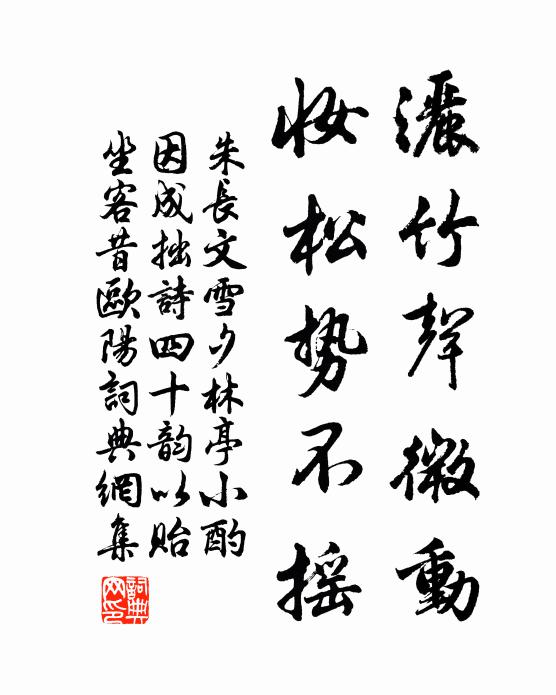 灑竹聲微動
妝松勢不搖
朱長文雪夕林亭小酌
因成拙詩四十韵以貽
坐客昔歐陽詞典網集
詞典
网印